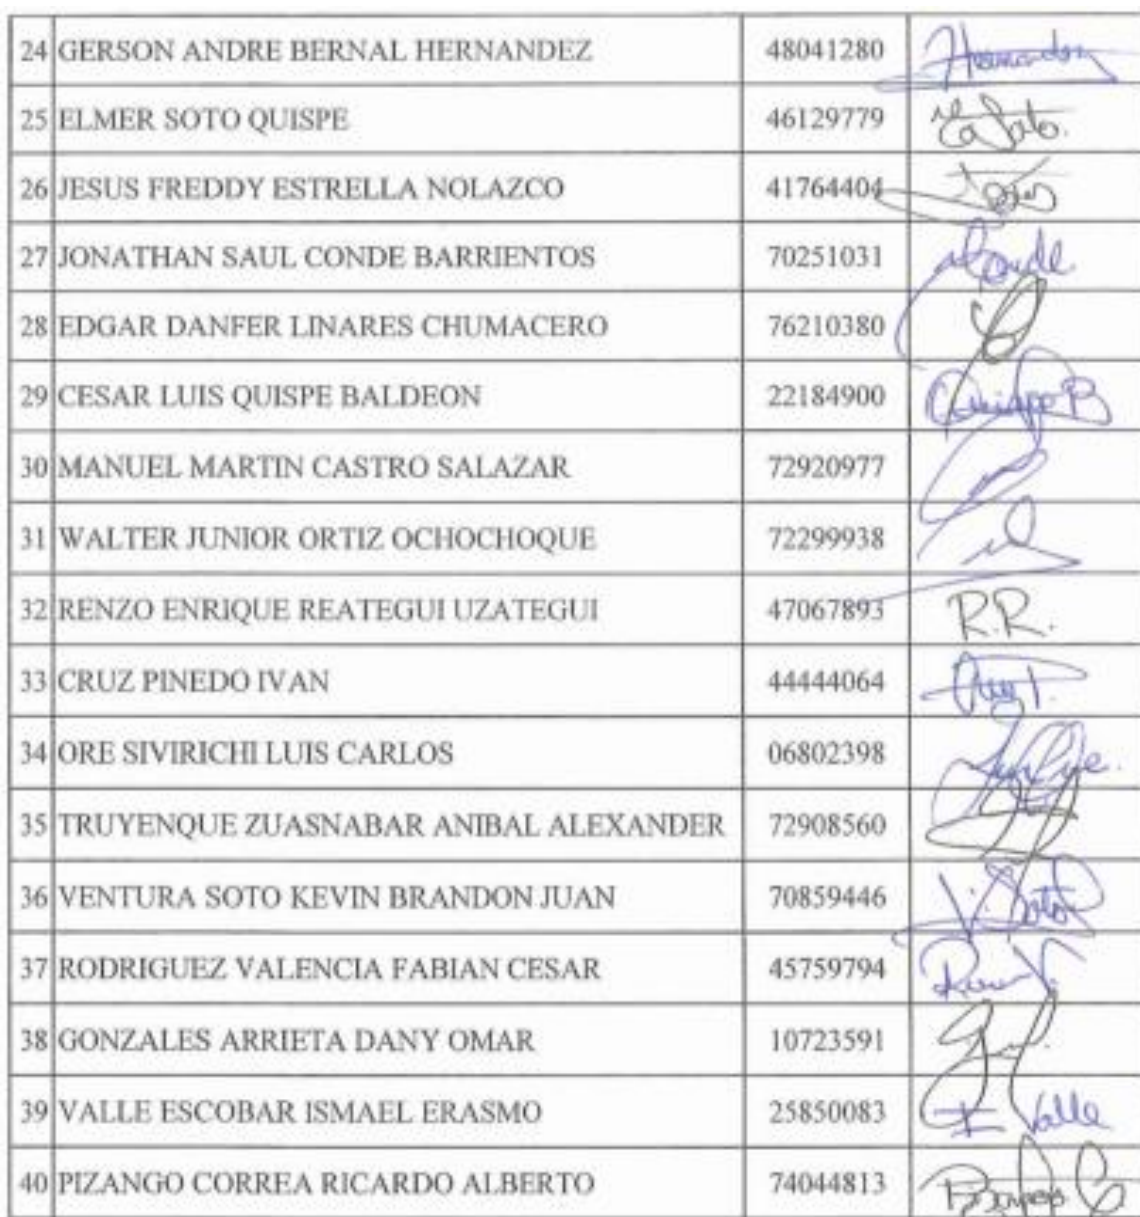 24 GERSON ANDRE BERNAL HERNANDEZ 48041280 Hernandez
25 ELMER SOTO QUISPE 46129779 Soto.
26 JESUS FREDDY ESTRELLA NOLAZCO 41764404
27 JONATHAN SAUL CONDE BARRIENTOS 70251031 Conde.
28 EDGAR DANFER LINARES CHUMACERO 76210380
29 CESAR LUIS QUISPE BALDEON 22184900 Quispe B
30 MANUEL MARTIN CASTRO SALAZAR 72920977
31 WALTER JUNIOR ORTIZ OCHOCHOQUE 72299938
32 RENZO ENRIQUE REATEGUI UZATEGUI 47067893 R.R.
33 CRUZ PINEDO IVAN 44444064
34 ORE SIVIRICHI LUIS CARLOS 06802398
35 TRUYENQUE ZUASNABAR ANIBAL ALEXANDER 72908560
36 VENTURA SOTO KEVIN BRANDON JUAN 70859446 V. Soto
37 RODRIGUEZ VALENCIA FABIAN CESAR 45759794
38 GONZALES ARRIETA DANY OMAR 10723591
39 VALLE ESCOBAR ISMAEL ERASMO 25850083 I Valle
40 PIZANGO CORREA RICARDO ALBERTO 74044813